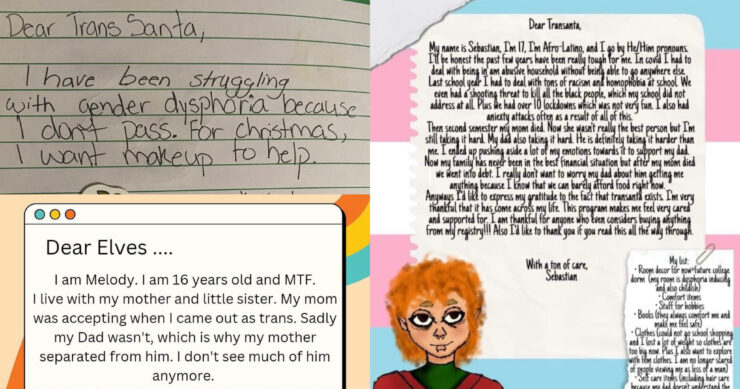 Dear Trans Santa,
I have been struggling
with gender dysphoria because
I don't pass. For christmas,
I want makeup to help.
Dear Elves ....
I am Melody. I am 16 years old and MTF.
I live with my mother and little sister. My mom
was accepting when I came out as trans. Sadly
my Dad wasn't, which is why my mother
separated from him. I don't see much of him
anymore.
Dear Transanta,
My name is Sebastian, I'm 17, I'm Afro-Latino, and I go by He/Him pronouns.
I'll be honest the past few years have been really tough for me. In covid I had to
deal with being in am abusive household without being able to go anywhere else.
Last school year I had to deal with tons of racism and homophobia at school. We
even had a shooting threat to kill all the black people, which my school did not
address at all. Plus we had over 10 lockdowns which was not very fun. I also had
anixety attacks often as a result of all of this.
Then second semester my mom died. Now she wasn't really the best person but I'm
still taking it hard. My dad also taking it hard. He is definitely taking it harder than
me. I ended up pushing aside a lot of my emotions towards it to support my dad.
Now my family has never been in the best financial situation but after my mom died
we went into debt. I really don't want to worry my dad about him getting me
anything because I know that we can barely afford food right now.
Anyways I'd like to express my gratitude to the fact that transanta exists. I'm very
thankful that it has come across my life. This program makes me feel very cared
and supported for. I am thankful for anyone who even considers buying anything
from my registry!!! Also I'd like to thank you if you read this all the way through.
With a ton of care,
Sebastian
My list:
• Room decor for now+future college
dorm (my room is dysphoria inducing
and also childish)
• Comfort items
• Stuff for hobbies
• Books (they always comfort me and
make me feel safe)
• Clothes (could not go school shopping
and I lost a lot of weight so clothes are
too big now. Plus I also want to explore
with fem clothes. I am no longer scared
of people viewing me as less of a man)
• Self care items (including hair care
because my dad doesn't understand the